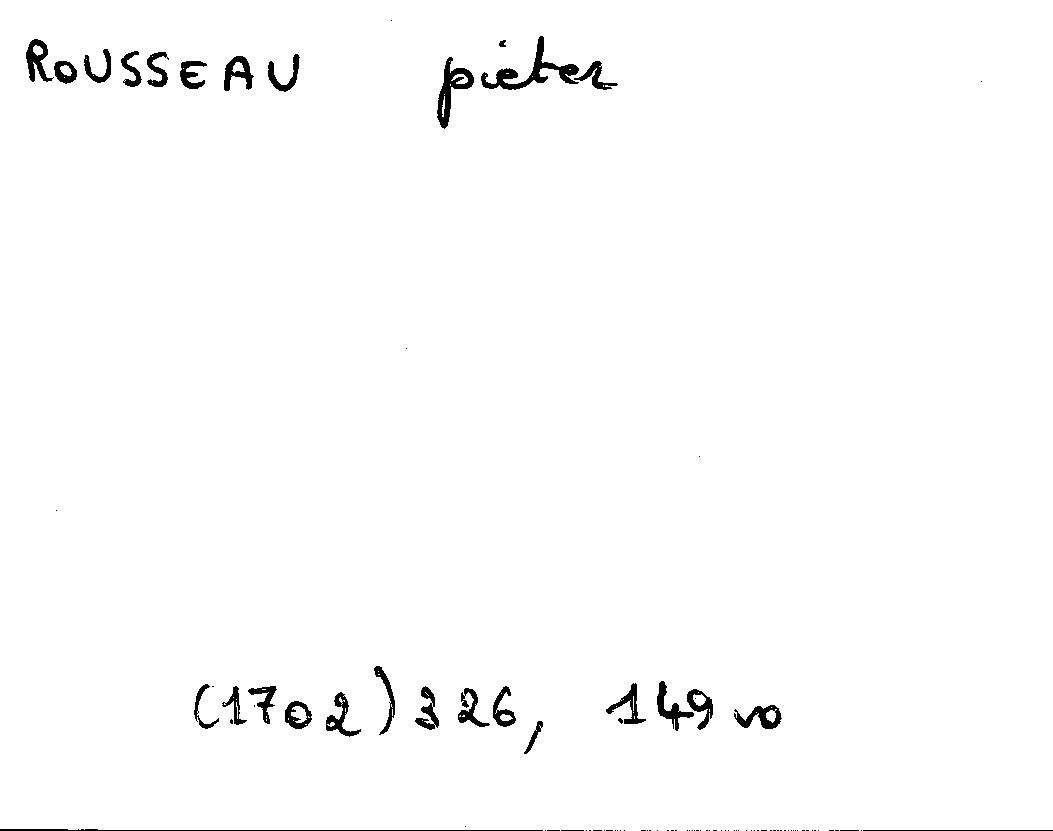 ROUSSEAU pieter
(1702) 326, 149 vo